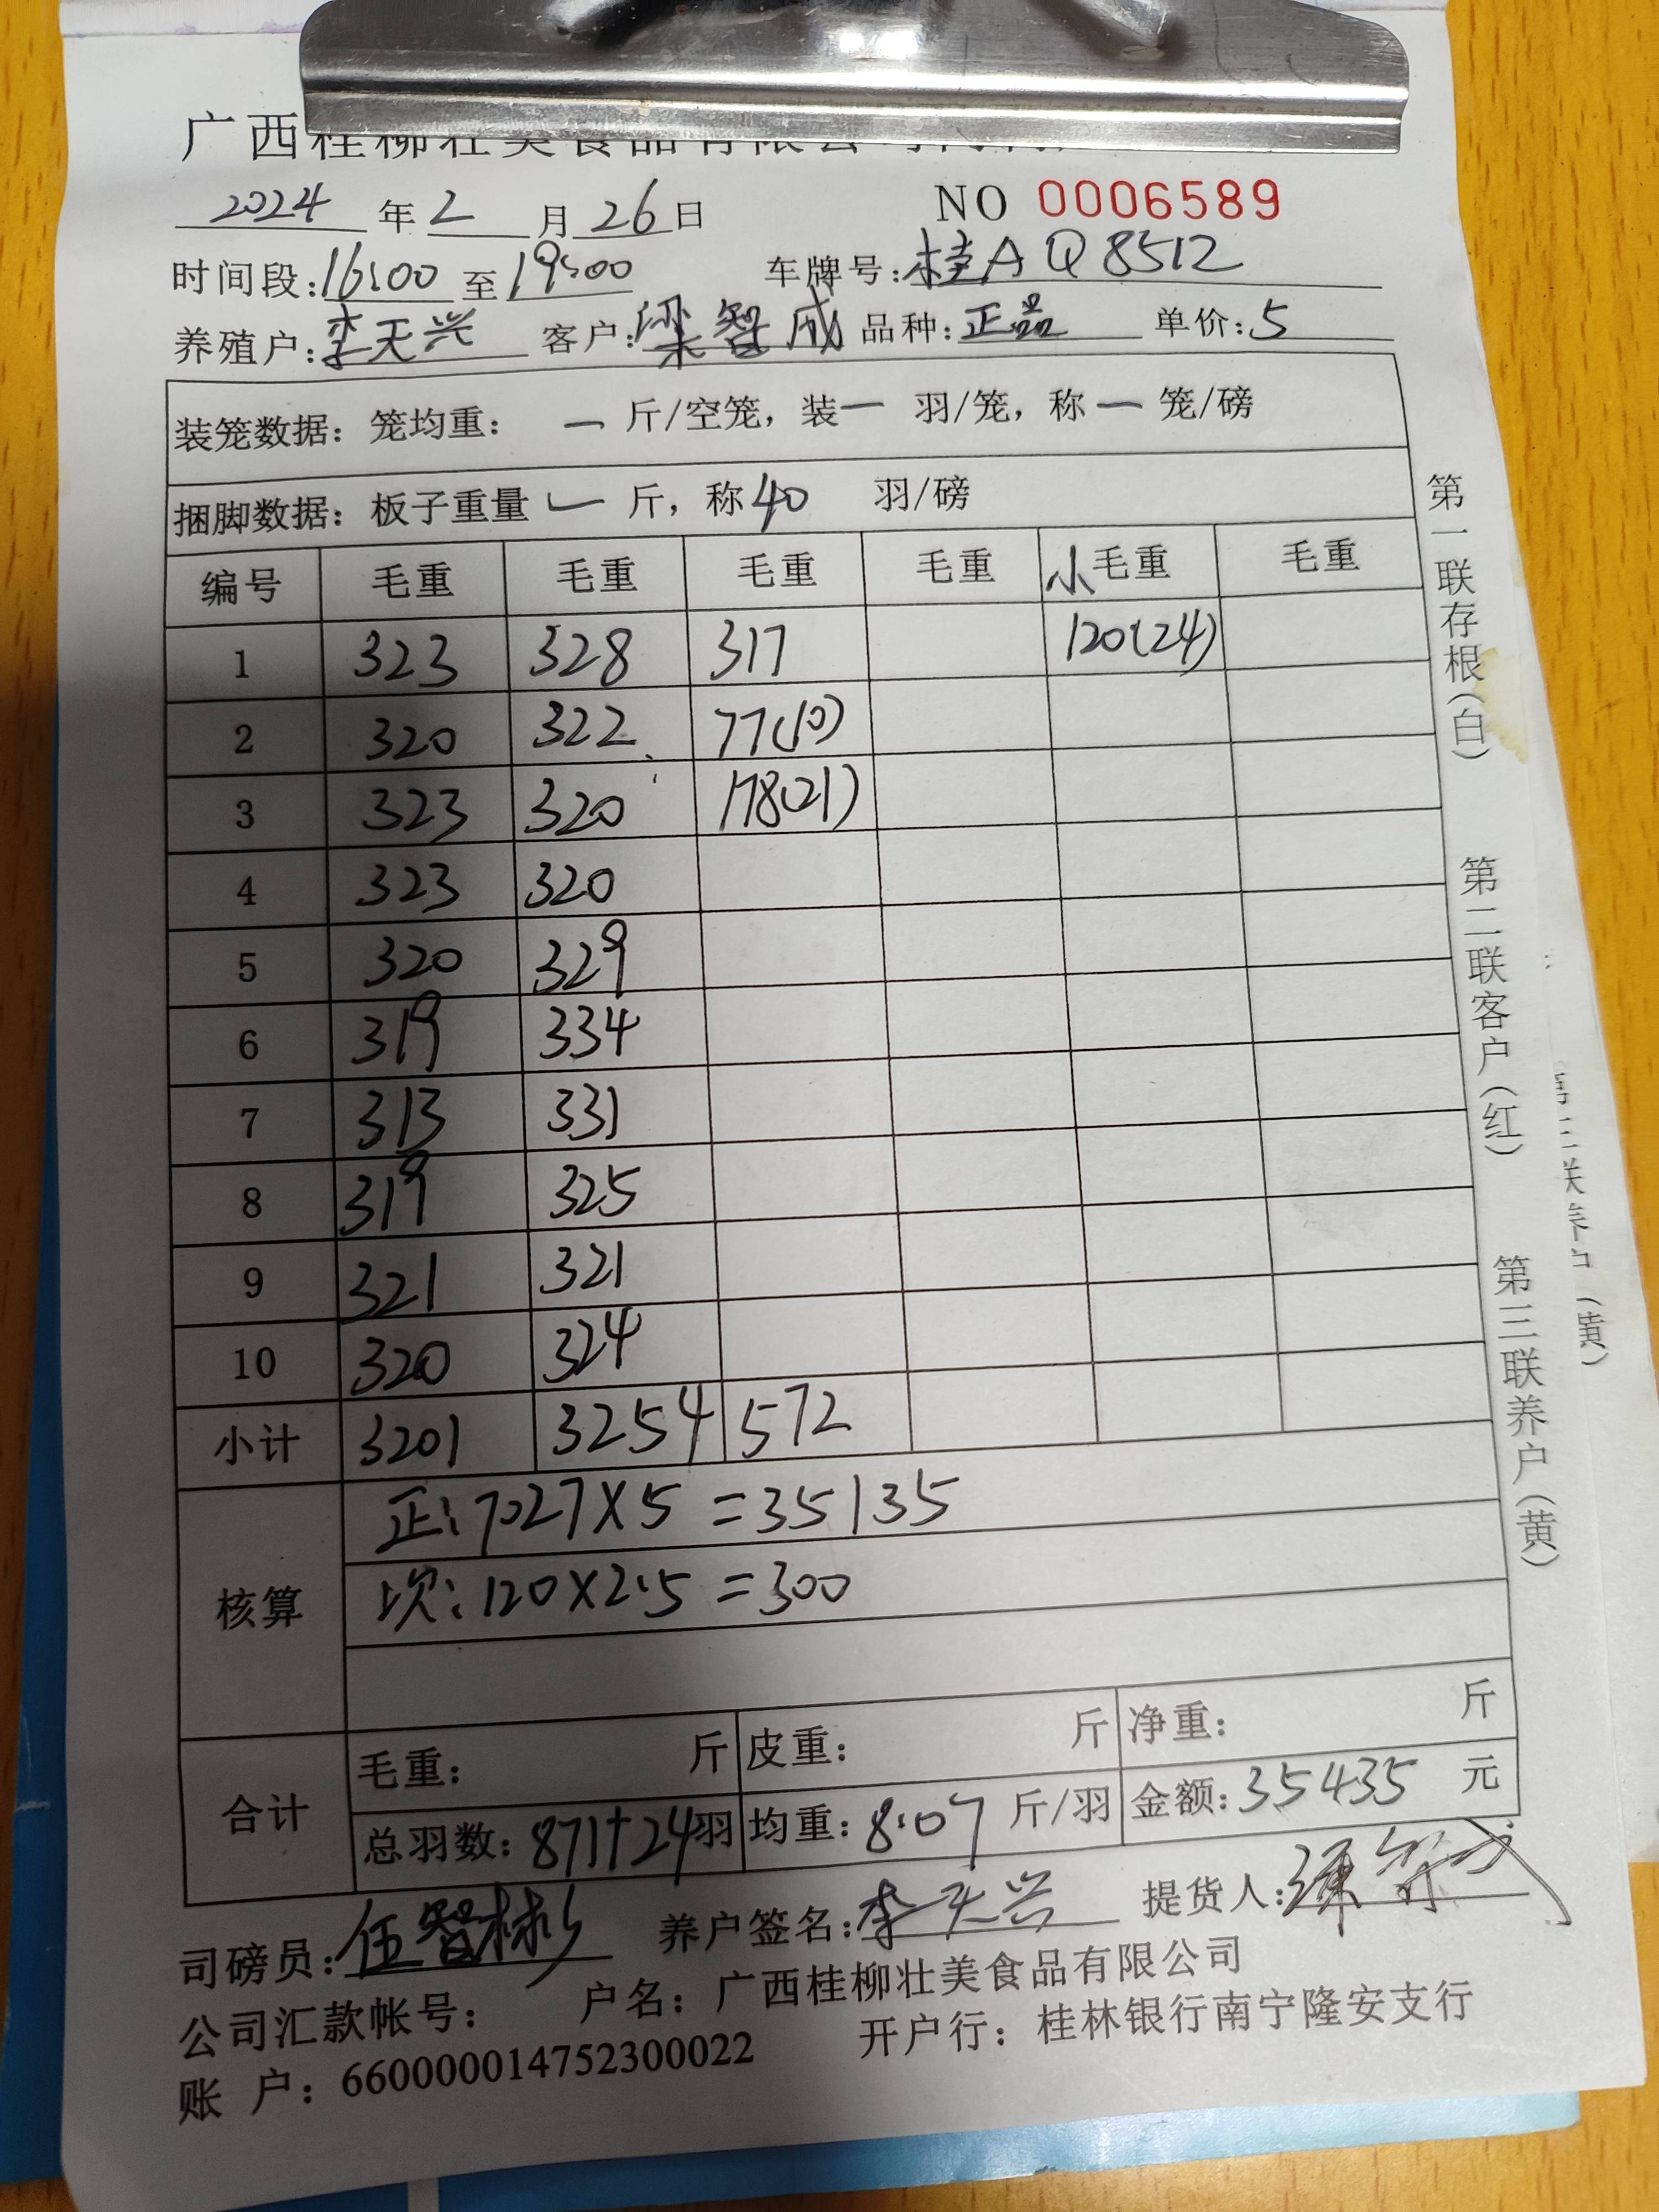 广西桂柳壮美食品有限公司
2024 年 2 月 26 日 NO 0006589
时间段:16:00 至 19:00 车牌号:桂AQ8512
养殖户:李天兴 客户:梁智成 品种:正品 单价:5
装笼数据：笼均重： — 斤/空笼，装 — 羽/笼，称 — 笼/磅
捆脚数据：板子重量 — 斤，称 40 羽/磅
编号 毛重 毛重 毛重 毛重 小毛重 毛重
1 323 328 317 120(24)
2 320 322 77(10)
3 323 320 178(21)
4 323 320
5 320 329
6 319 334
7 313 331
8 319 325
9 321 321
10 320 324
小计 3201 3254 572
核算
正:7027×5=35135
次:120×2.5=300
合计
毛重： 斤 皮重： 斤 净重： 斤
总羽数：871+24羽 均重：8.07 斤/羽 金额：35435 元
司磅员:伍智彬 养户签名:李天兴 提货人:
公司汇款帐号： 户名：广西桂柳壮美食品有限公司
账 户：660000014752300022 开户行：桂林银行南宁隆安支行
第一联存根(白) 第二联客户(红) 第三联养户(黄)
第三联养户(黄)